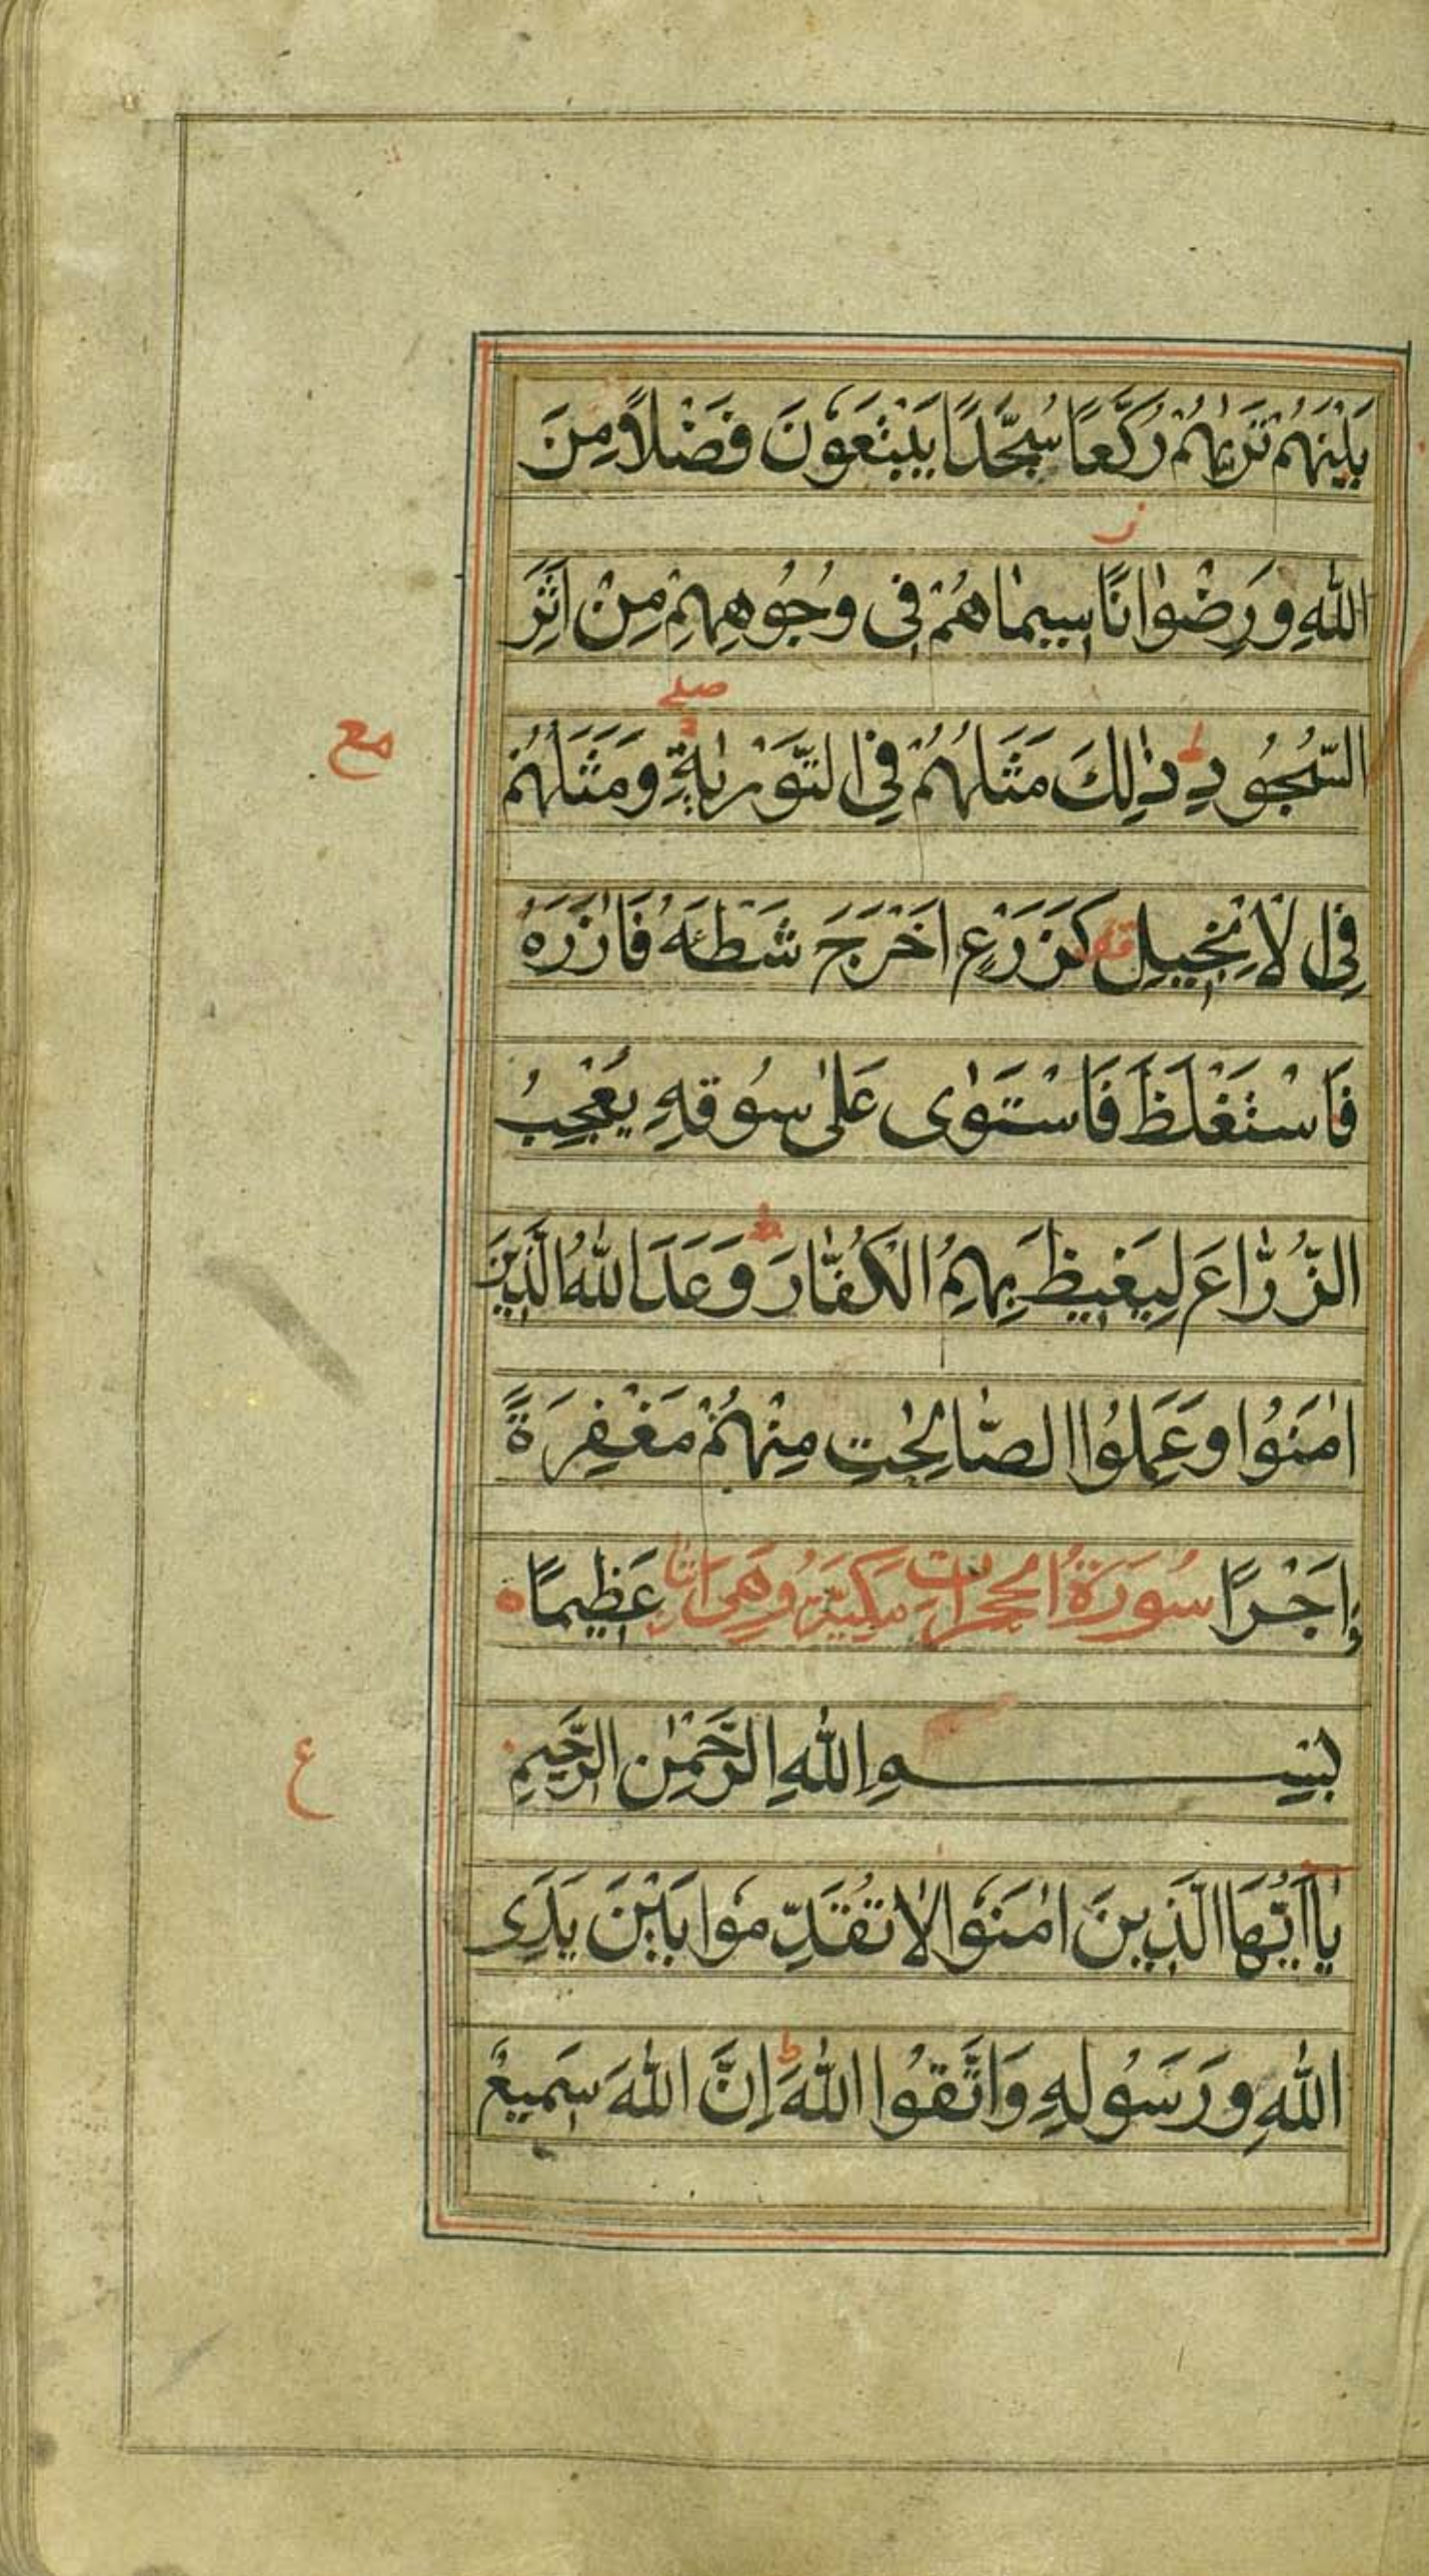 بَيْنَهُمْ تَرٰيهُمْ رُكَّعًا سُجَّدًا يَبْتَغُوْنَ فَضْلًا مِنَ
ز
اللّٰهِ وَرِضْوٰانًا سِيمٰاهُمْ فِى وُجُوهِهِمْ مِنْ اَثَرِ
صلے
مع
السُّجُودِ ط ذٰلِكَ مَثَلُهُمْ فِى التَّوْرٰيةِ وَمَثَلُهُمْ
فِى الْاِنْجِيلِ كَزَرْعٍ اَخْرَجَ شَطْأَهُ فَاٰزَرَهُ
فَاسْتَغْلَظَ فَاسْتَوٰى عَلٰى سُوقِهِ يُعْجِبُ
الزُّرّٰاعَ لِيَغِيظَ بِهِمُ الْكُفّٰارَ ط وَعَدَ اللّٰهُ الَّذِينَ
اٰمَنُوا وَعَمِلُوا الصّٰالِحٰتِ مِنْهُمْ مَغْفِرَةً
وَاَجْرًا سُورَةُ الحجرات وَهِىَ عَظِيمًا ه
بِسْمِ اللّٰهِ الرَّحْمٰنِ الرَّحِيمِ
ع
يٰااَيُّهَا الَّذِينَ اٰمَنُوْا لٰا تُقَدِّمُوْا بَيْنَ يَدَىِ
اللّٰهِ وَرَسُولِهِ وَاتَّقُوا اللّٰهَ ط اِنَّ اللّٰهَ سَمِيعٌ